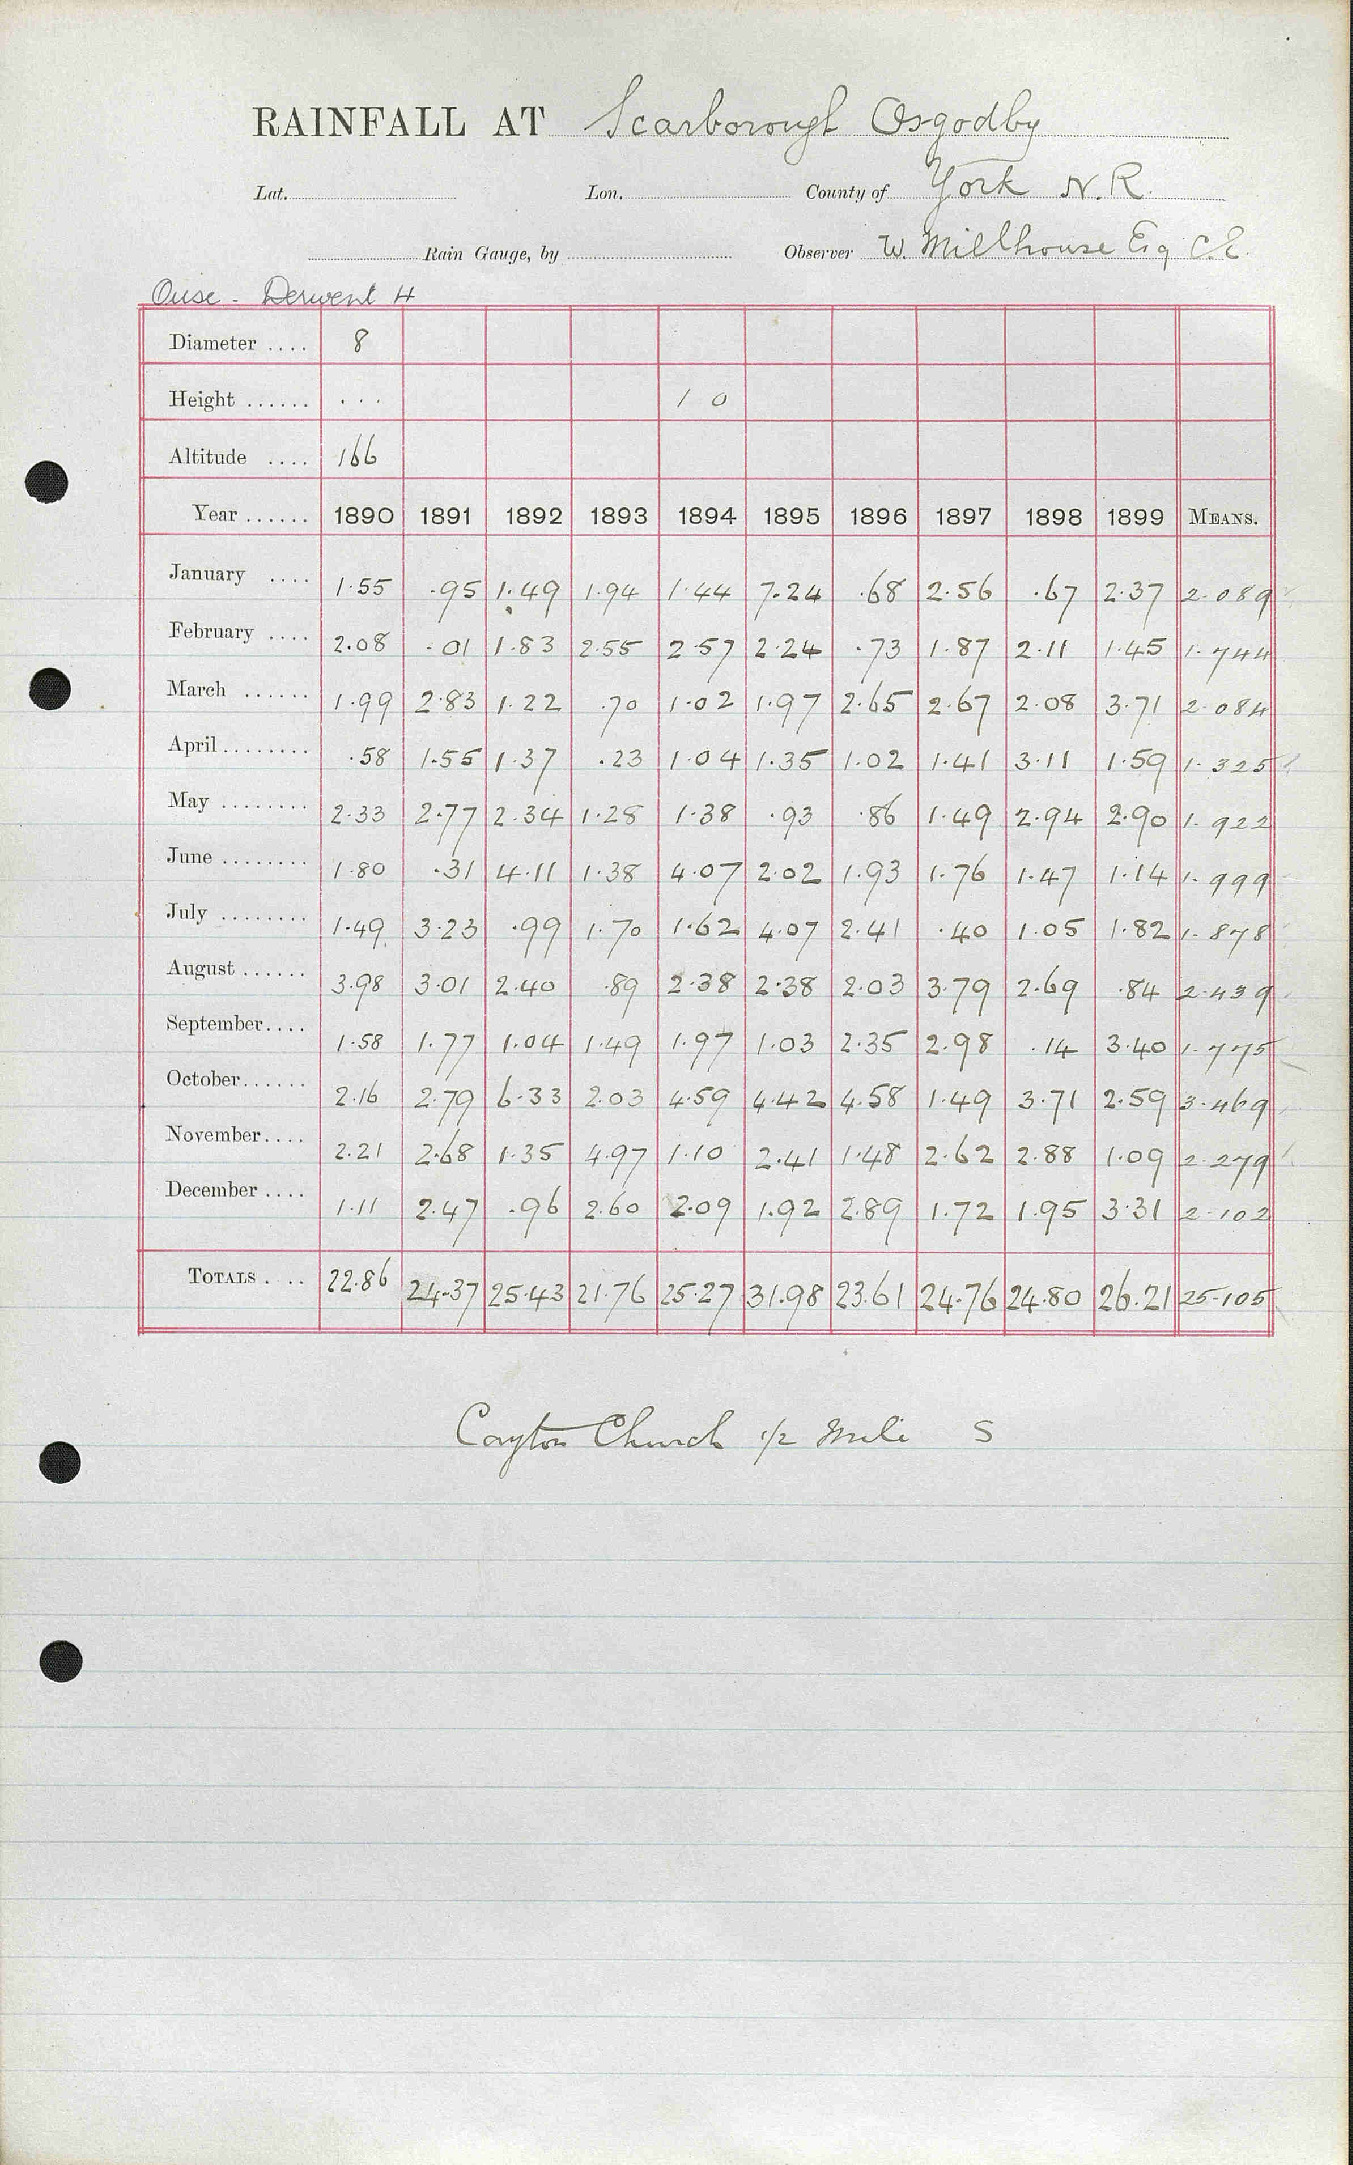 RAINFALL AT Scarborough Osgodby
Lat. Lon. County of York N.R.
Rain Gauge, by Observer W. Millhouse Esq C.E.
Ouse - Derwent H
Diameter .... 8
Height ...... ... 1 0
Altitude .... 166
Year ...... 1890 1891 1892 1893 1894 1895 1896 1897 1898 1899 MEANS.
January .... 1.55 .95 1.49 1.94 1.44 7.24 .68 2.56 .67 2.37 2.089
February .... 2.08 .01 1.83 2.55 2.57 2.24 .73 1.87 2.11 1.45 1.744
March ...... 1.99 2.83 1.22 .70 1.02 1.97 2.65 2.67 2.08 3.71 2.084
April ........ .58 1.55 1.37 .23 1.04 1.35 1.02 1.41 3.11 1.59 1.325
May ........ 2.33 2.77 2.34 1.28 1.38 .93 .86 1.49 2.94 2.90 1.922
June ........ 1.80 .31 4.11 1.38 4.07 2.02 1.93 1.76 1.47 1.14 1.999
July ........ 1.49 3.23 .99 1.70 1.62 4.07 2.41 .40 1.05 1.82 1.878
August ...... 3.98 3.01 2.40 .89 2.38 2.38 2.03 3.79 2.69 .84 2.439
September.... 1.58 1.77 1.04 1.49 1.97 1.03 2.35 2.98 .14 3.40 1.775
October...... 2.16 2.79 6.33 2.03 4.59 4.42 4.58 1.49 3.71 2.59 3.469
November.... 2.21 2.68 1.35 4.97 1.10 2.41 1.48 2.62 2.88 1.09 2.279
December .... 1.11 2.47 .96 2.60 2.09 1.92 2.89 1.72 1.95 3.31 2.102
TOTALS .... 22.86 24.37 25.43 21.76 25.27 31.98 23.61 24.76 24.80 26.21 25.105
Cayton Church 1/2 Mile S